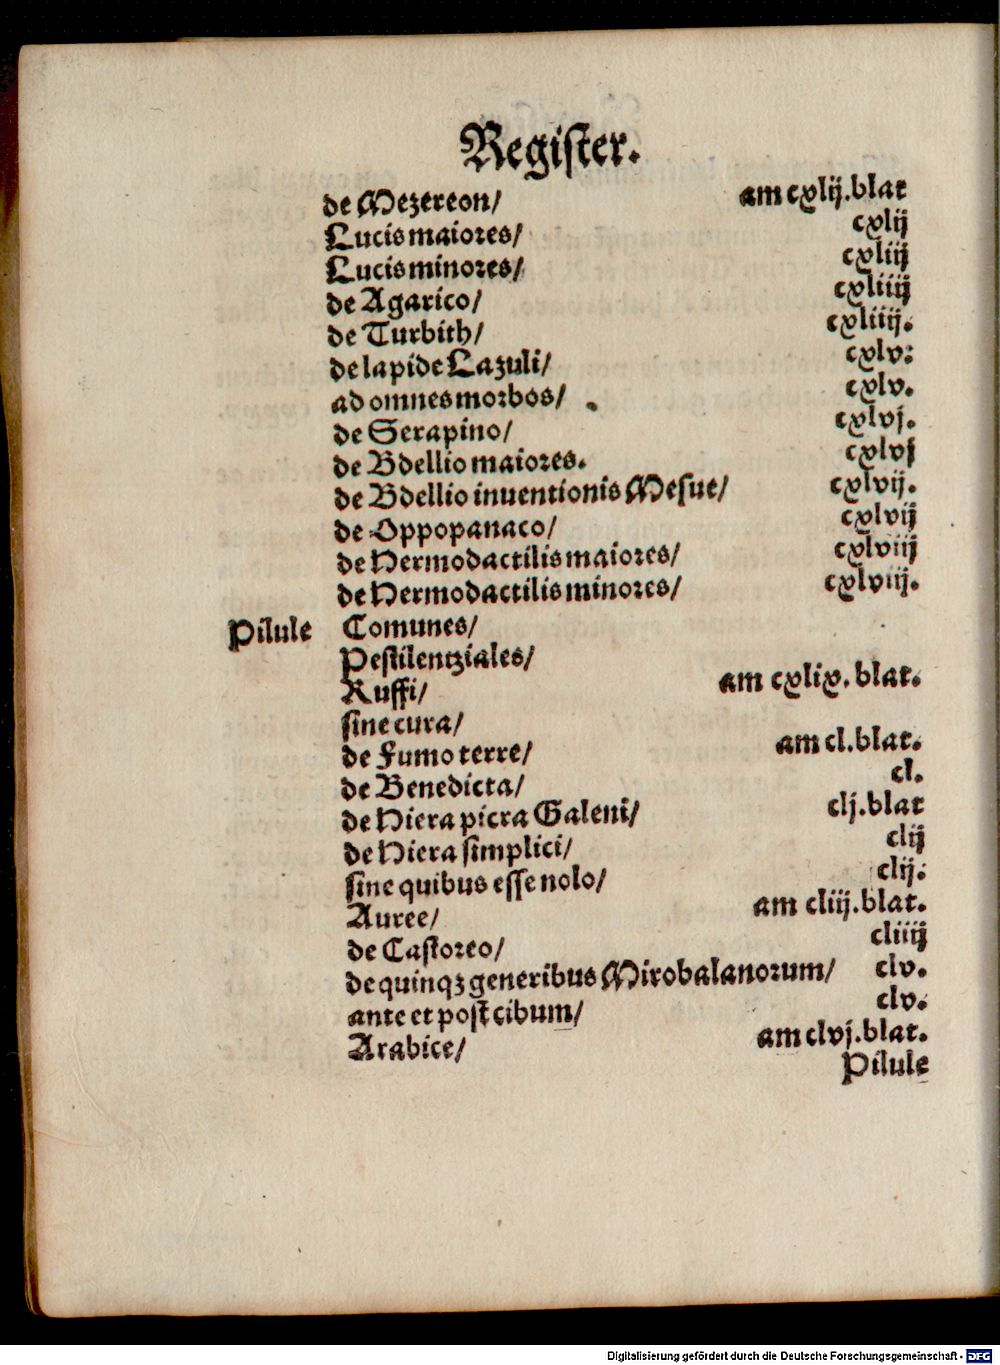 Register.
de Mezereon/ am cxlij.blat
Lucis maiores/ cxlij
Lucis minores/ cxliij
de Agarico/ cxliiij
de Turbith/ cxliiij.
de lapide Lazuli/ cxlv:
ad omnes morbos/ cxlv.
de Serapino/ cxlvj.
de Bdellio maiores. cxlvj
de Bdellio inuentionis Mesue/ cxlvij.
de Oppopanaco/ cxlvij
de Hermodactilis maiores/ cxlviij
de Hermodactilis minores/ cxlviij.
Pilule Comunes/
Pestilentziales/
Ruffi/ am cxlix.blat.
sine cura/
de Fumo terre/ am cl.blat.
de Benedicta/ cl.
de Hiera picra Galeni/ clj.blat
de Hiera simplici/ clij
sine quibus esse nolo/ clij:
Auree/ am cliij.blat.
de Castoreo/ cliiij
de quinqꝫ generibus Mirobalanorum/ clv.
ante et post cibum/ clv.
Arabice/ am clvj.blat.
Pilule
Digitalisierung gefördert durch die Deutsche Forschungsgemeinschaft - DFG